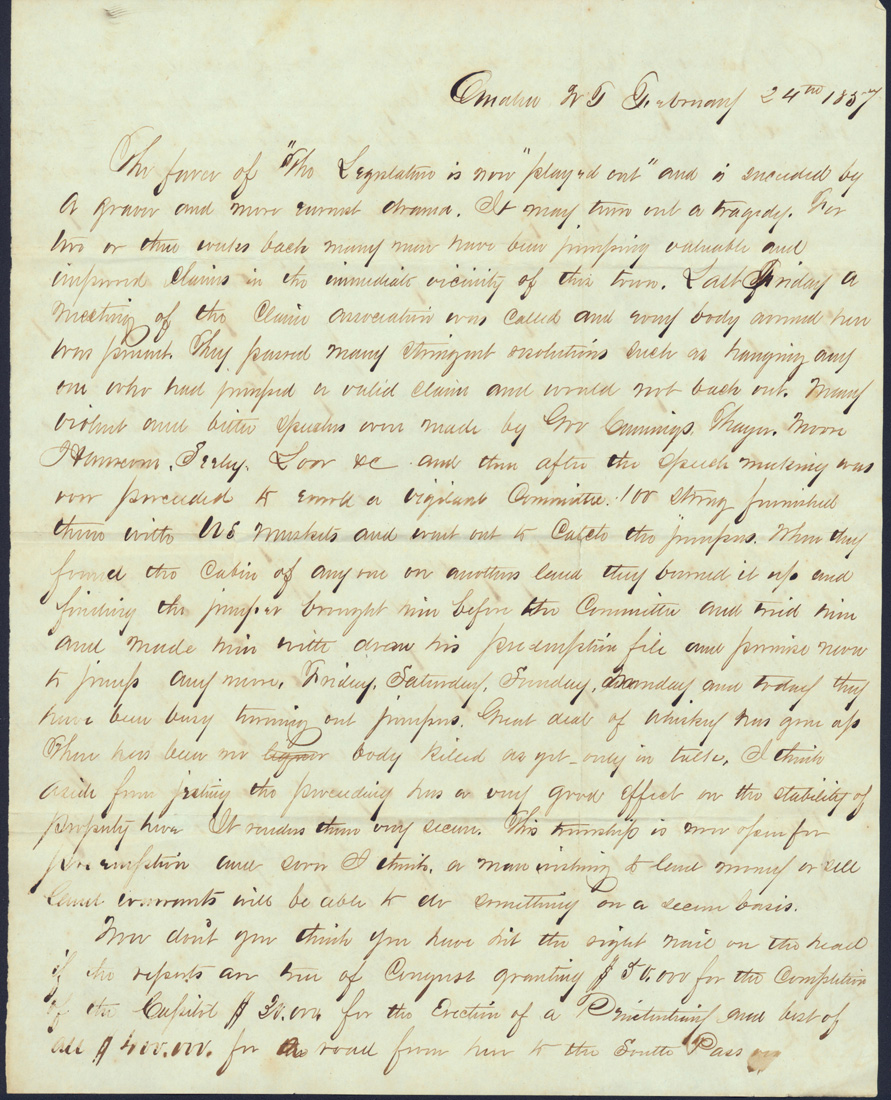 Omaha N T February 24th 1857
The farce of "The Legislature is now "played out" and is succeeded by
a graver and more earnest drama. It may turn out a tragedy. For
two or three weeks back many men have been jumping valuable and
improved claims in the immediate vicinity of this town. Last Friday a
meeting of the Claim association was called and every body around here
was present. They passed many stringent resolutions such as hanging any
one who had jumped a valid claim and would not back out. Many
violent and bitter speeches were made by Gov Cumings. Thayer. Moore
&c and then after the speech making was
over proceeded to enroll a vigilant Committee. 100 strong furnished
them with US muskets and went out to catch the jumpers. When they
found the cabin of any one on anothers land they burned it up and
finding the jumper brought him before the Committee and tried him
and made him with draw his preemption file and promise never
to jump any more. Friday, Saturday, Sunday, Monday and today they
have been busy turning out jumpers. Great deal of whiskey has gone up
There has been no body killed as yet - only in talk. I think
aside from jesting the proceeding has a very good effect on the stability of
property here It renders them very secure. This township is now open for
preemption and soon I think, a man wishing to lend money or sell
land warrants will be able to do something on a secure basis.
Now don't you think you have hit the right nail on the head
if the reports are true of Congress granting $ 50.000 for the Completion
of the Capitol $ 30.000. for the Erection of a Penitentiary and best of
all $ 400.000. for a road from here to the South Pass